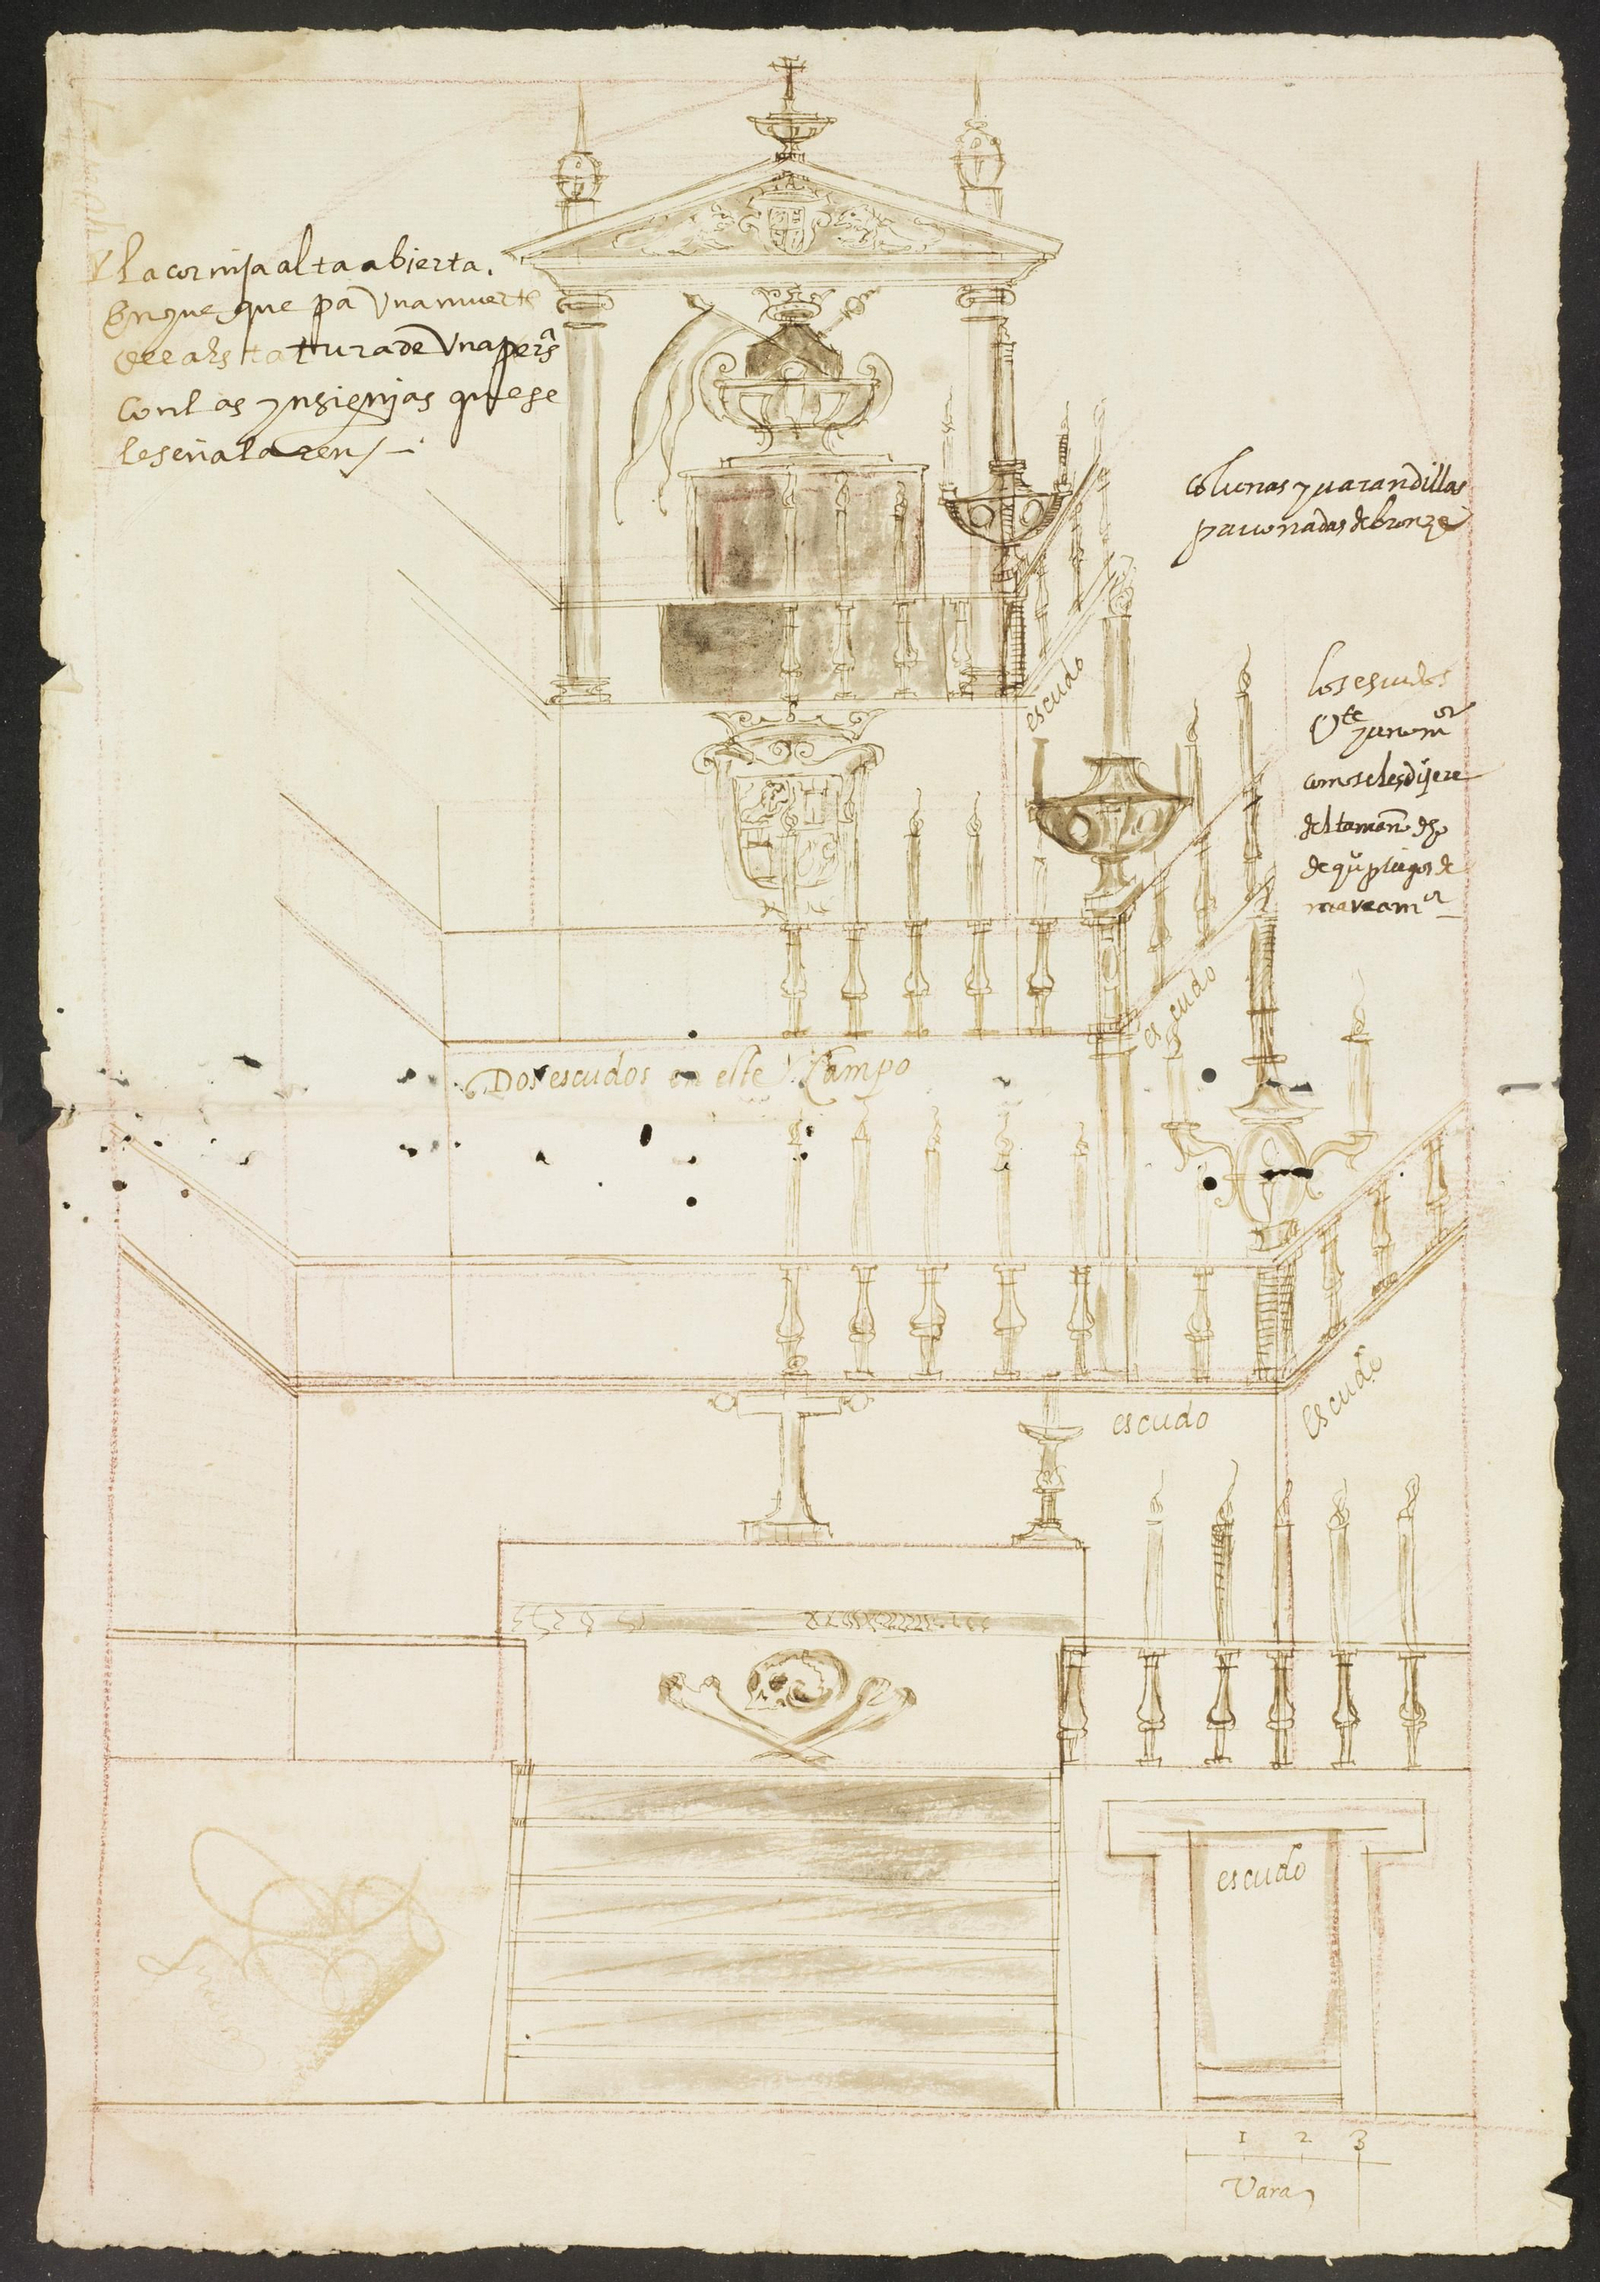 Y la cornija alta abierta.
En que que pa Una muerte
de la estattura de Una persª
Con las ynsignias que se
le señalaren
colunas y varandillas
pavonadas de bronze
los escudos
como se les dijere
del tamañ
de pliegos de
escudo
escudo
Dos escudos en este Campo
escudo
escudo
escudo
1 2 3
Varas